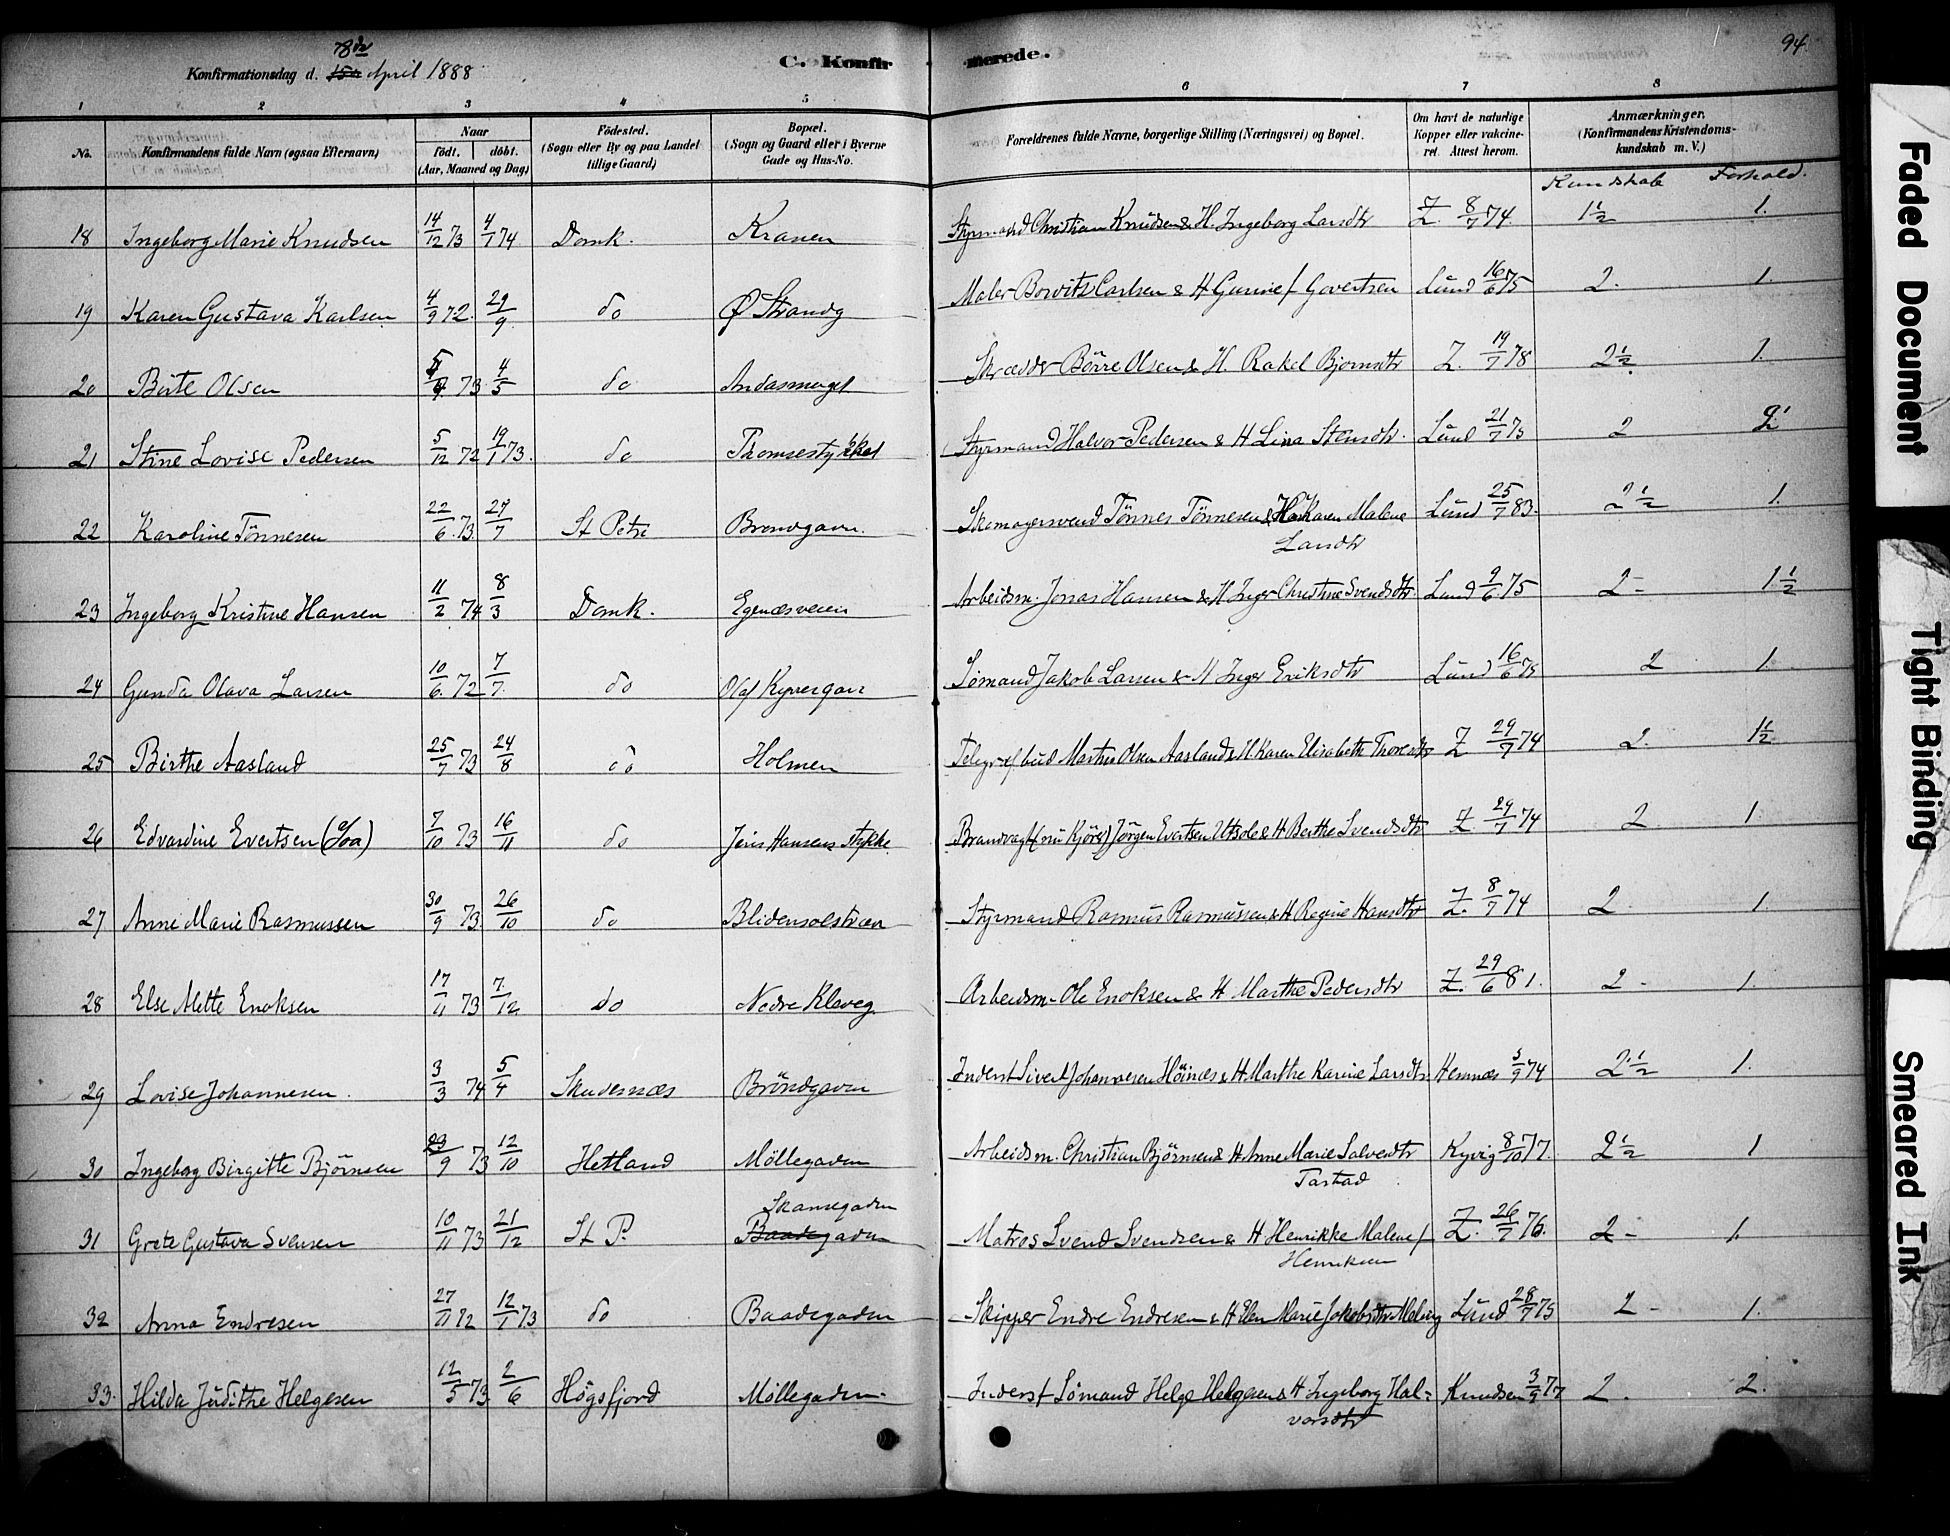 Konfirmationsdag d. 15de 18de April 1888
C. Konfirmerede.
94
1 2 3 4 5 6 7 8
No.
Konfirmandens fulde Navn (ogsaa Efternavn)
Naar
födt. döbt.
(Aar, Maaned og Dag)
Födested.
(Sogn eller By og paa Landet
tillige Gaard)
Bopæl.
(Sogn og Gaard eller i Byerne
Gade og Hus-No.
Forældrenes fulde Navne, borgerlige Stilling (Næringsvei) og Bopæl.
Om havt de naturlige
Kopper eller vakcine-
ret. Attest herom.
Anmærkninger.
(Konfirmandens Kristendoms-
kundskab m. V.)
Kundskab Forhold.
18 Ingeborg Marie Knudsen 14/12 73 4/1 74 Domk. Kranen Styrmand Christian Knudsen & H. Ingeborg Larsdtr Z. 8/7 74. 1½ 1.
19 Karen Gustava Karlsen 4/9 72. 29/9. do Ø Strandg Maler Carlsen & H Gurine Govertsen Lund 16/6 75 2. 1.
20 Birte Olsen 73 4/5 do Skrædder Börre Olsen & H. Rakel Bjornsdtr Z. 19/7 78 2½ 1.
21 Stine Lovise Pedersen 5/12 72 19/1 73. do Thomsestykket Styrmand Halvor Pedersen & H Lina Stensdtr. Lund 21/7 75 2
22 Karoline Tönnesen 22/6 73. 27/7 St Petri Brondgaden. Skomagersvend Tönnes Tönnesen & H Karen Malene
Larsdtr Lund 25/7 83. 2½ 1.
23 Ingeborg Kristine Hansen 11/2 74 8/3 Domk. Egenæsveien Arbeidsm. Jonas Hansen & H Inger Christine Svendsdtr. Lund 9/6 75 2 - 1½
24 Gunda Olava Larsen 10/6. 72 7/7. do Olaf Kyrresgate Sömand Jakob Larsen & H Inger Eriksdtr Lund 16/6 75 2 1.
25 Birthe Aasland 25/7 73 24/8 do Holmen Telegrafbud Martin Olsen Aasland & H Karen Elisabeth Thoresdtr Z 29/7 74 2. 1½
26 Edvardine Evertsen 7/10 73 16/11 do Jens Hansens Stykke. Brandvagt Jörgen Evertsen Utsole & H Berthe Svendsdtr Z 29/7 74 2 1.
27 Anne Marie Rasmussen 30/9 73. 26/10 do Blidensolstræn Styrmand Rasmus Rasmussen & H Regine Hansdtr Z. 8/7 74 2. 1.
28 Else Mette Enoksen 17/11 73 7/12 do Nedre Kleveg. Arbeidsm. Ole Enoksen & H Marthe Pedersdtr Z. 29/6 81. 2 - 1.
29 Lovise Johannesen. 3/3 74 5/4 Skudesnæs Bröndgaden Inderst Sivert Johannesen Höinæs & H Marthe Karine Larsdtr. Hemnæs 3/9 74 2½ 1.
30 Ingeborg Birgitte Björnsen 23/9 73 12/10 Hetland Möllegaden Arbeidsm. Christian Björnsen & H Anne Marie Salvesdtr
Tastad Kyvig 8/10 77. 2½ 1
31 Grete Gustava Svensen 10/11 73 21/12 St P. Skansegaden
Baadegaden Matros Svend Svendsen & H Henrikke Malene
Henriksen Z. 26/7 76. 2 - 1.
32 Anna Endresen 27/11 72 12/1 73 do Baadegaden Skipper Endre Endresen & H Ellen Marie Jakobsdtr Meling Lund 28/7 75 2 - 1.
33. Hilda Judithe Helgesen 12/5 73. 2/6 Högsfjord Möllegaden. Inderst Sömand Helge Helgesen & H Ingeborg Hal-
vorsdtr Knudsen 3/9 77 2. 2.
Faded Document
Tight Binding
Smeared Ink